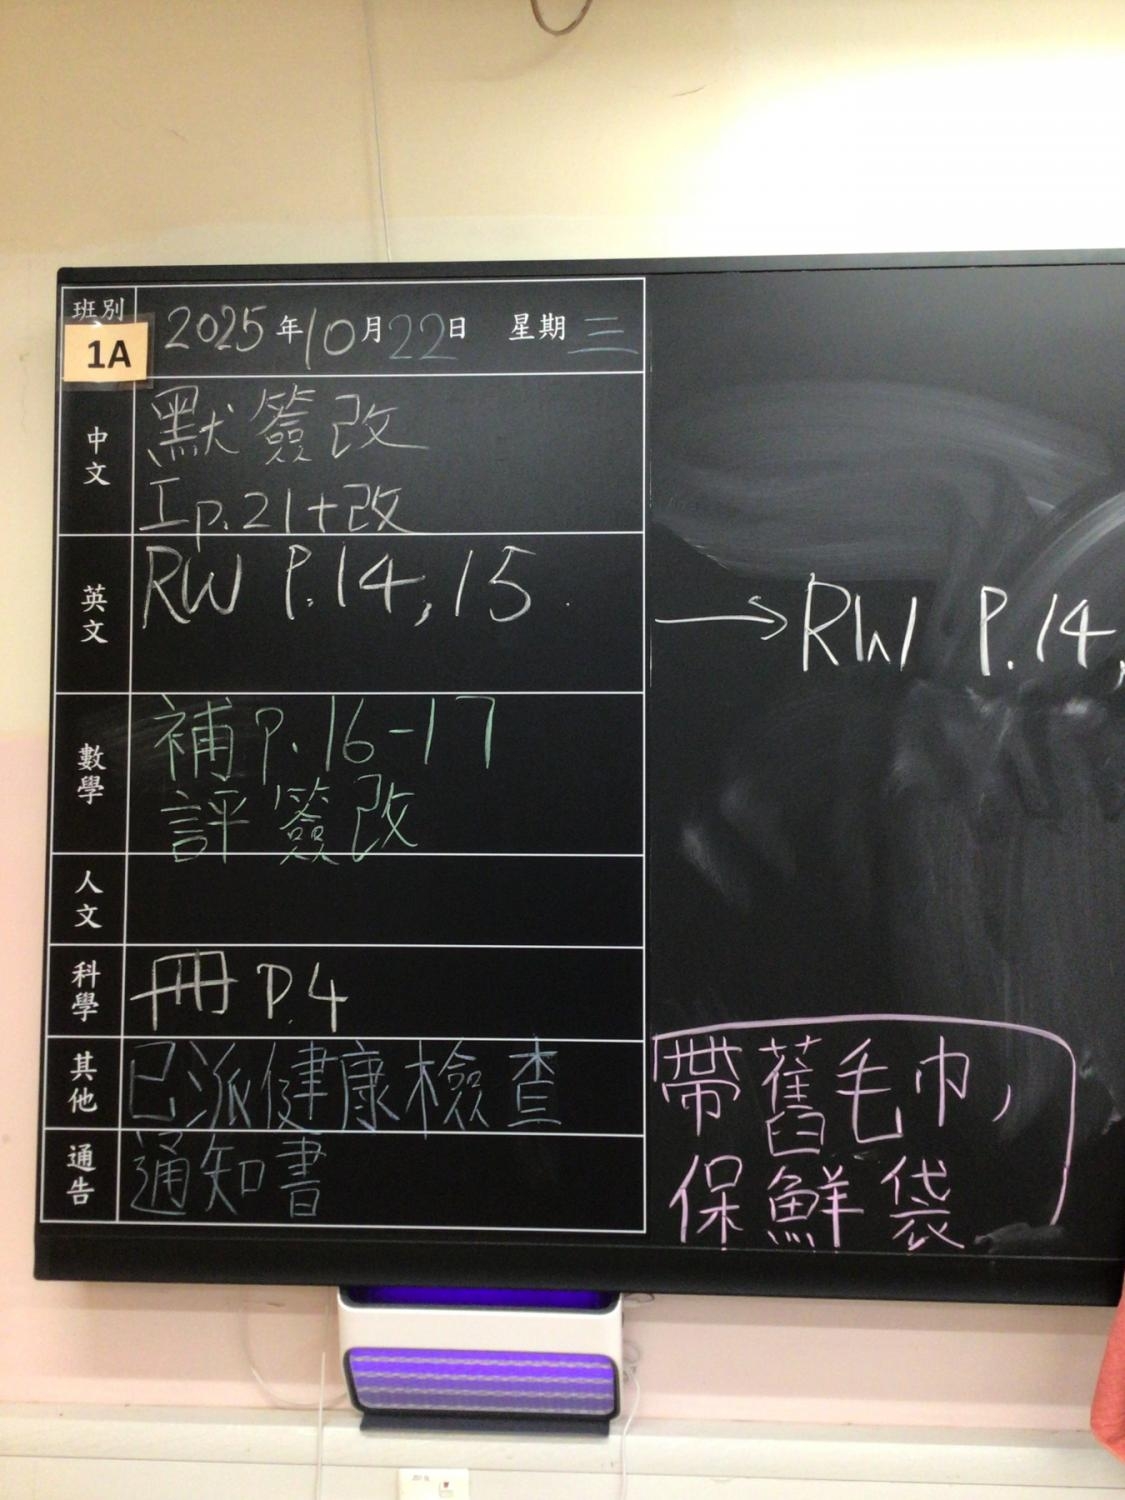 班別
1A
2025年10月22日 星期三
中文
默簽改
工p.21+改
英文
RW P.14,15.
→RW P.14,
數學
補P.16-17
評簽改
人文
科學
冊P.4
其他
已派健康檢查
通告
通知書
帶舊毛巾,
保鮮袋